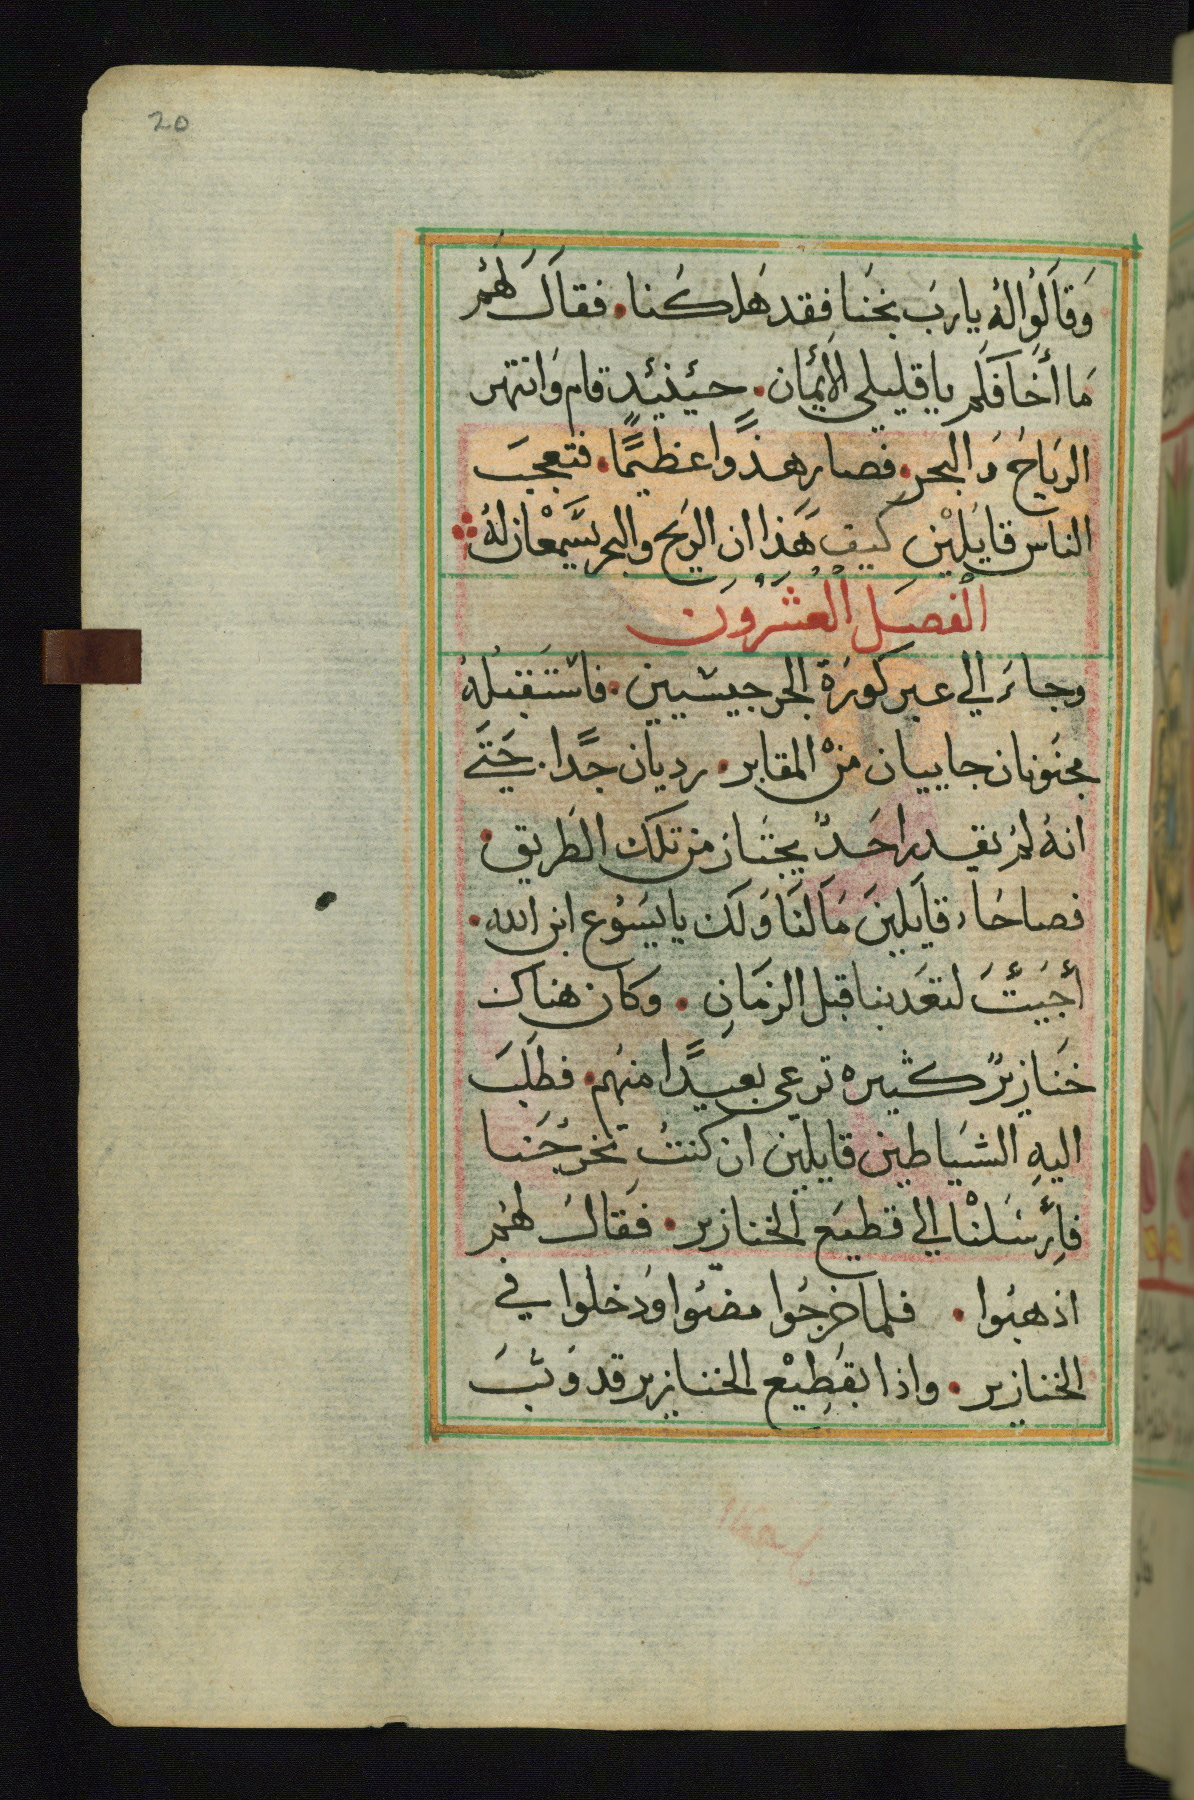 20
وَقَالَوُا لهُ يارب نجنَا فقد هَلكنا. فقالَ لهُمْ
مَا أخَافَكم يا قليلي الأيمَان. حيئنيئد قام وَانتهر
الريَاحُ وَ البحر. فصار هذوًا عظيمًا. فتعجبَ
الناس قايلِيْن كيف هَذا ان الريح والبحر يسَّمعْان لهُ
الفصَل العشرونَ
وجاءَ الي عبر كورَة الجرجيسَيين. فاستَقبلهُ
مجنَونان جاييان منْ المقابر. رديان جدًا. حَتَي
انهُ لمْ يقدر احَدٌ يجتاز من تلك الطَريق.
فصاحَا قايلينَ مَا لنَا وَلك يا يسَوُع ابن الله.
أجَيَتَ لتعَدبنا قبل الزمَانِ. وكان هناك
خنَازيرٌ كثيره ترعي بعيدًا منهُم. فطلَبَ
اليهِ الشيَاطين قايلين ان كنتُ تخرجَنا
فأرسَلنْا الي قطيعَ الخنازير. فقالَ لهُمْ
اذهبوُا. فلما خرجُوا مضَوا وَدخلوا في
الخنازير. واذا بقطِيْع الخنازير قد وَثبَ